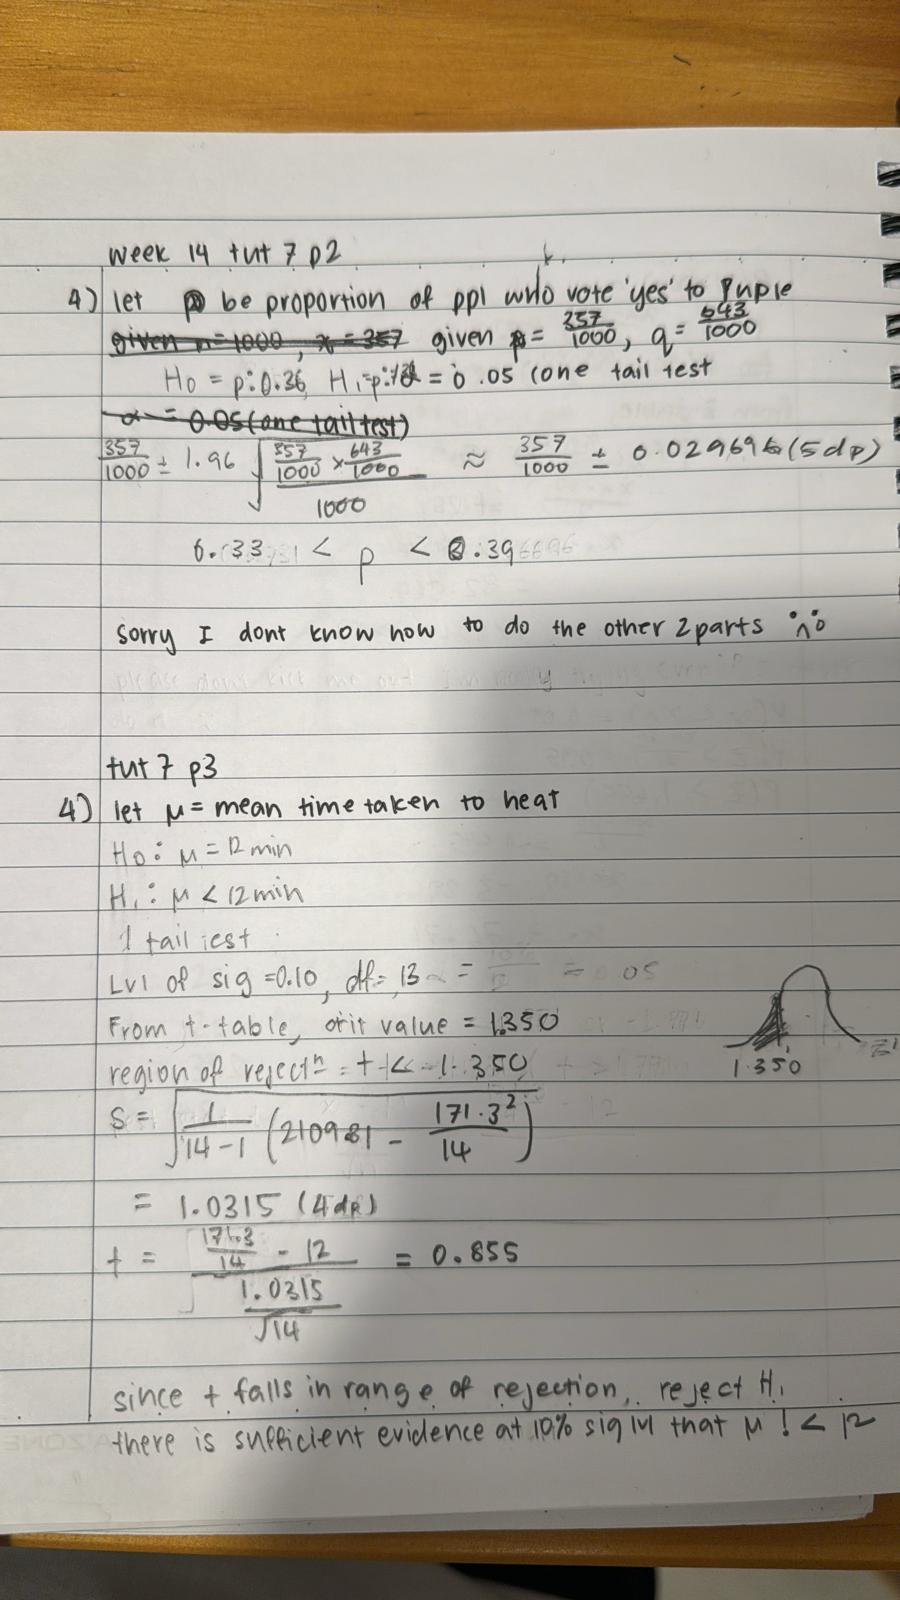 week 14 tut 7 p2
4) let p be proportion of ppl who vote 'yes' to Puple
given n = 1000, x = 357 given p = 357/1000, q = 643/1000
H0 = p: 0.36, H1 = p: = 0.05 (one tail test
α = 0.05 (one tail test)
357/1000 ± 1.96 √(357/1000 × 643/1000 / 1000) ≈ 357/1000 ± 0.029696 (5dp)
0.33 < p < 0.396696
sorry I dont know how to do the other 2 parts
please dont kick me out I'm really trying
tut 7 p3
4) let μ = mean time taken to heat
H0: μ = 12 min
H1: μ < 12 min
1 tail test
Lvl of sig = 0.10, df = 13 = 05
From t-table, crit value = 1.350
region of rejectⁿ = t < -1.350
1.350
s = √(1/(14-1) (210981 - 171.3²/14))
= 1.0315 (4dp)
t = (171.3/14 - 12) / (1.0315/√14) = 0.855
since t falls in range of rejection, reject H1
there is sufficient evidence at 10% sig lvl that μ ! < 12